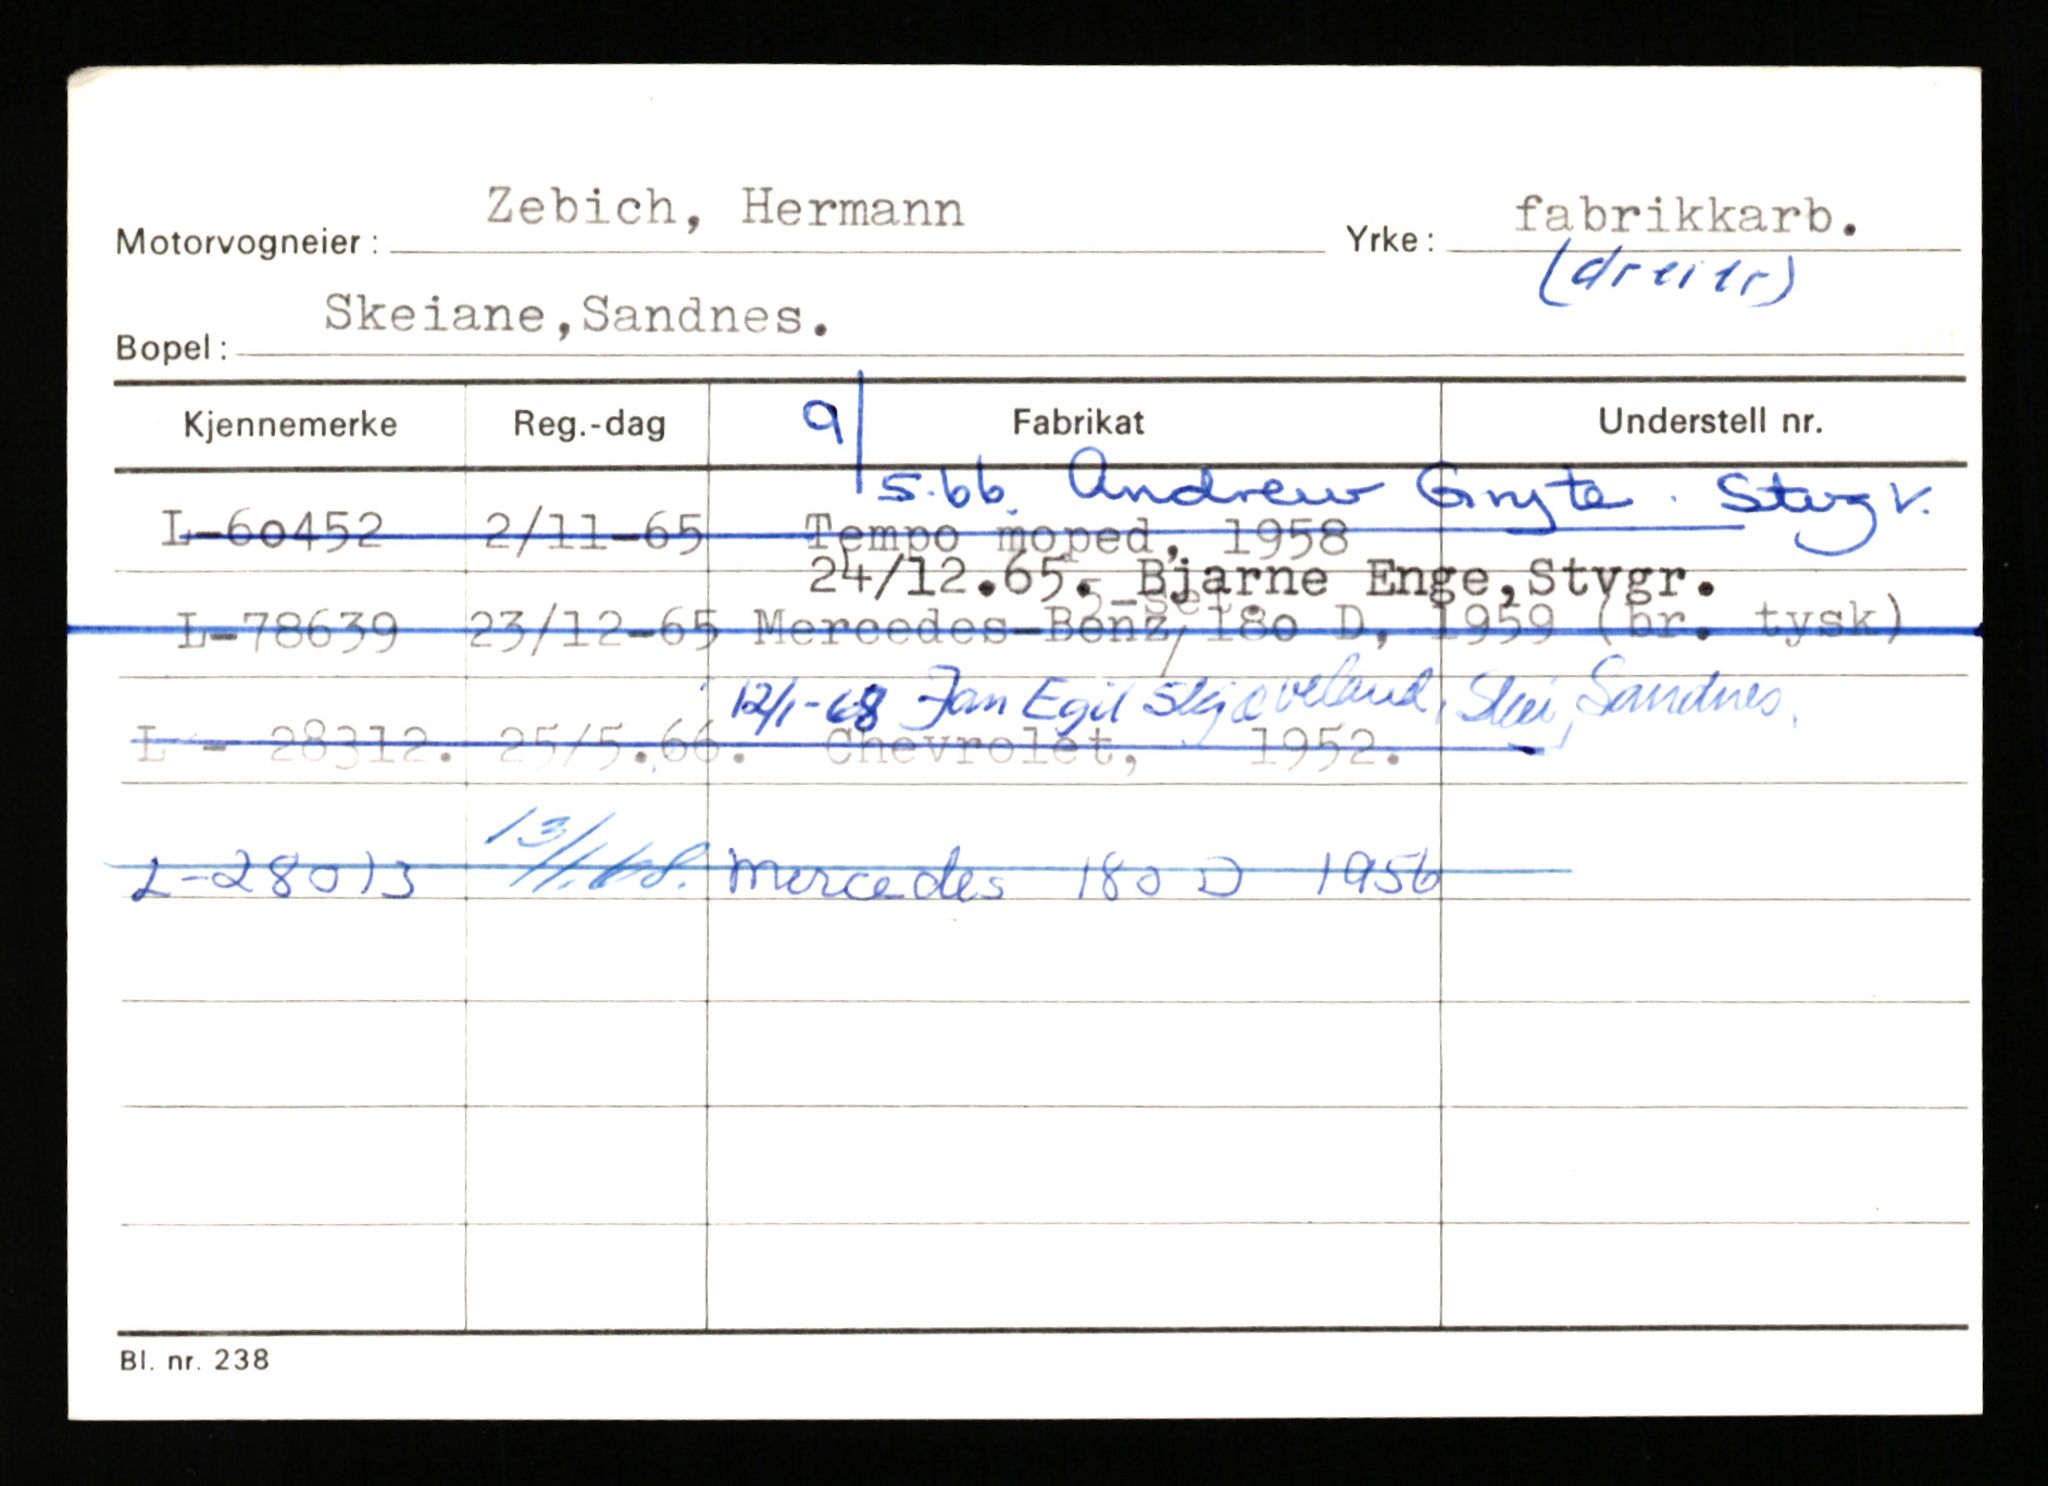 Motorvogneier: Zebich, Hermann Yrke: fabrikkarb.
(dreier)
Bopel: Skeiane,Sandnes.
Kjennemerke Reg.-dag Fabrikat Understell nr.
9/5.66. Andrew Gryte. Stvgr.
L-60452 2/11-65 Tempo moped, 1958
24/12.65. Bjarne Enge,Stvgr.
5-set.
L-78639 23/12-65 Mercedes-Benz/180 D, 1959 (br. tysk)
12/1-68 Jan Egil Skjæveland, Skei, Sandnes.
L - 28312. 25/5.66. Chevrolet, 1952.
L-28013 13/1.68. Mercedes 180 D 1956
Bl. nr. 238